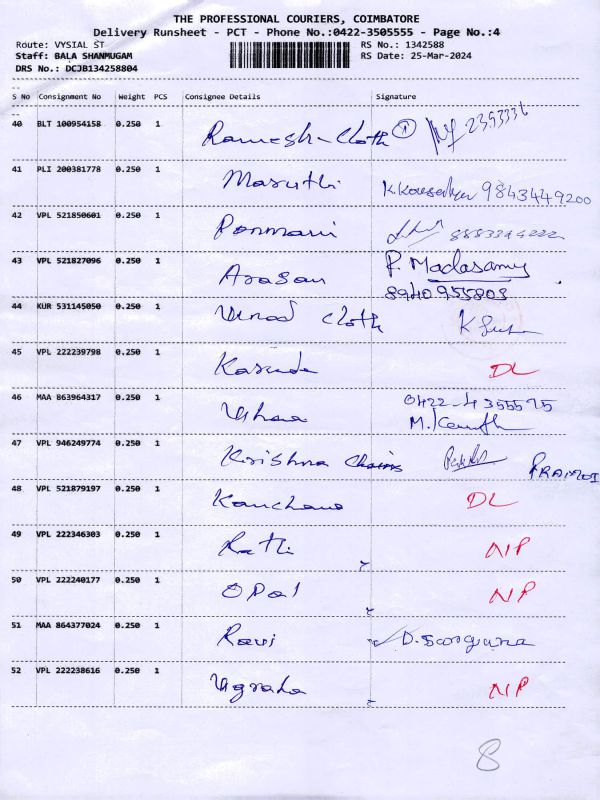 THE PROFESSIONAL COURIERS, COIMBATORE
Delivery Runsheet - PCT - Phone No.:0422-3505555 - Page No.:4
Route: VYSIAL ST RS No.: 1342588
Staff: BALA SHANMUGAM RS Date: 25-Mar-2024
DRS No.: DCJB134258804
S No Consignment No Weight PCS Consignee Details Signature
40 BLT 100954158 0.250 1 Ramesh-Cloth 1
41 PLI 200381778 0.250 1 Maruthi 9843449200
42 VPL 521850601 0.250 1 Ponmani
43 VPL 521827096 0.250 1 Arasan P. Madasamy
8940955803
44 KUR 531145050 0.250 1 Vinod Cloth
45 VPL 222239798 0.250 1 DL
46 MAA 863964317 0.250 1 0422-4355575
47 VPL 946249774 0.250 1 Krishna Chains
48 VPL 521879197 0.250 1 Kanchana DL
49 VPL 222346303 0.250 1 Rathi NP
50 VPL 222240177 0.250 1 Opal NP
51 MAA 864377024 0.250 1 Ravi
52 VPL 222238616 0.250 1 NP
8